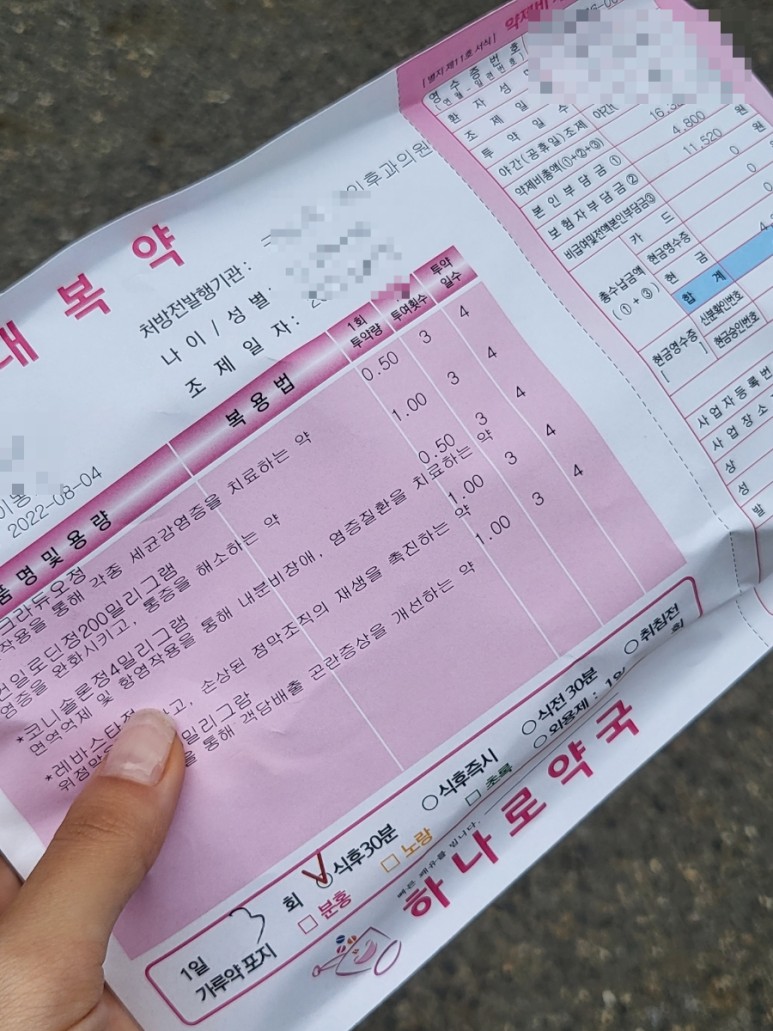 내복약
처방전발행기관 :
이후과의원
나 이 / 성 별 .
조 제 일 자 :
2022-08-04
품 명 및 용 량
복 용 법
1회 투약량
투여횟수
투약 일수
크라듀오정
작용을 통해 각종 세균감염증을 치료하는 약
0.50 3 4
건일로딘정200밀리그램
염증을 완화시키고, 통증을 해소하는 약
1.00 3 4
*코니슬론정4밀리그램
면역억제 및 항염작용을 통해 내분비장애, 염증질환을 치료하는 약
0.50 3 4
*레바스타정
고, 손상된 점막조직의 재생을 촉진하는 약
1.00 3 4
밀리그람
을 통해 객담배출 곤란증상을 개선하는 약
1.00 3 4
1일 3 회
식후30분
식후즉시
식전 30분
취침전
가루약 포지
분홍
노랑
초록
외용제 :
하나로약국
[ 별지 제11호 서식 ]
영 수 증 번 호
( 연 월 - 일 련 번 호 )
환 자 성 명
조 제 일 수
투 약 일 수
야 간 ( 공 휴 일 ) 조 제
약제비총액(①+②+③)
본 인 부 담 금 ①
4,800 원
보 험 자 부 담 금 ②
11,520 원
비급여및전액본인부담금③
0
총수납금액
( ① + ③ )
카 드
0
현금영수증
0
현 금
합 계
현금영수증
[ ]
신분확인번호
현금승인번호
사 업 자 등 록 번
사 업 장 소
상
성
발